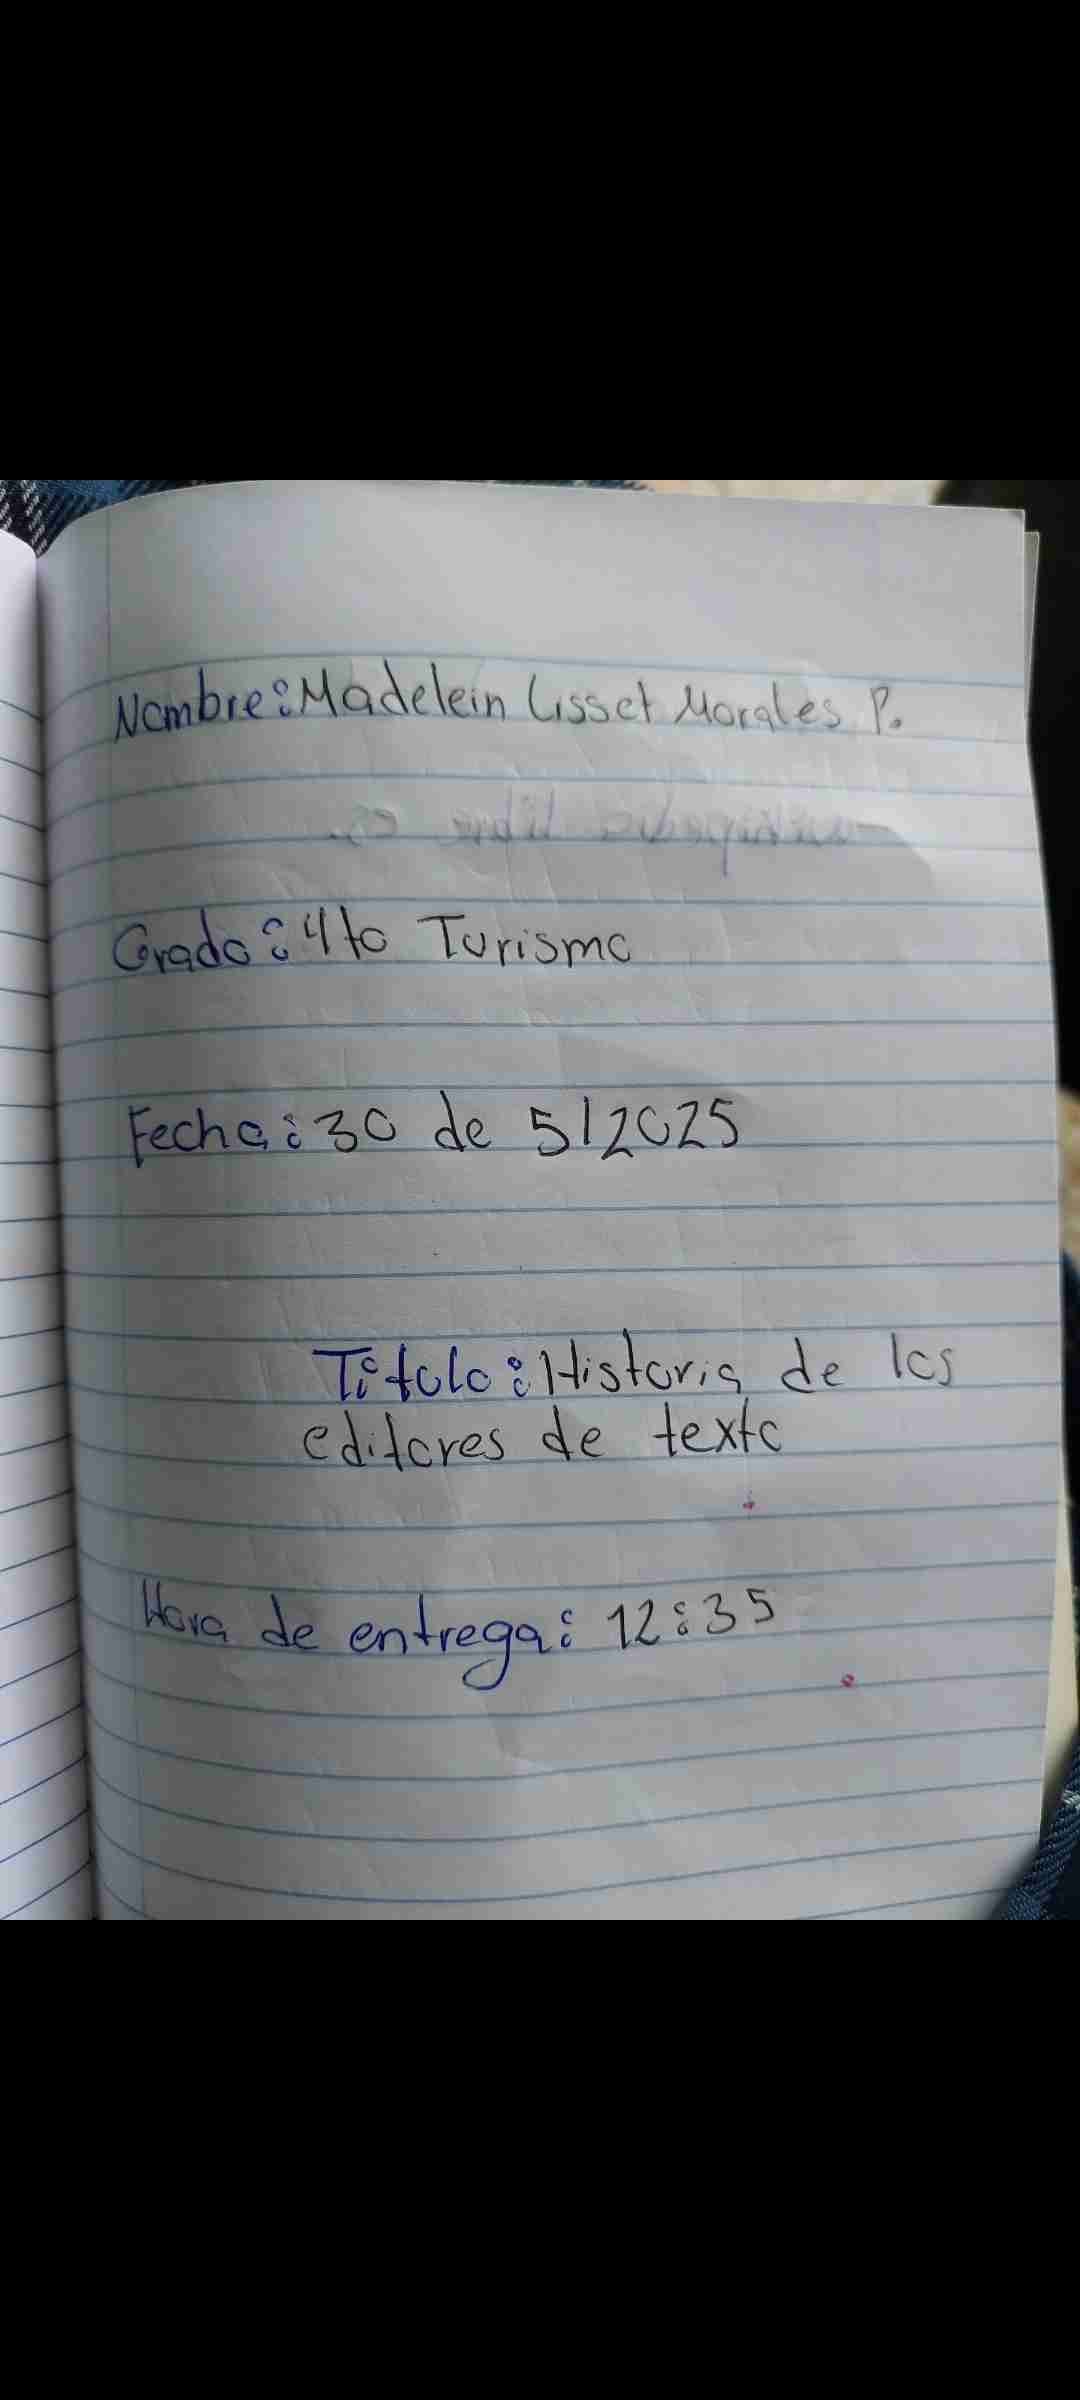 Nombre: Madelein Lisset Morales P.
Grado: 4to Turismo
Fecha: 30 de 5/2025
Título: Historia de los
editores de texto
Hora de entrega: 12:35